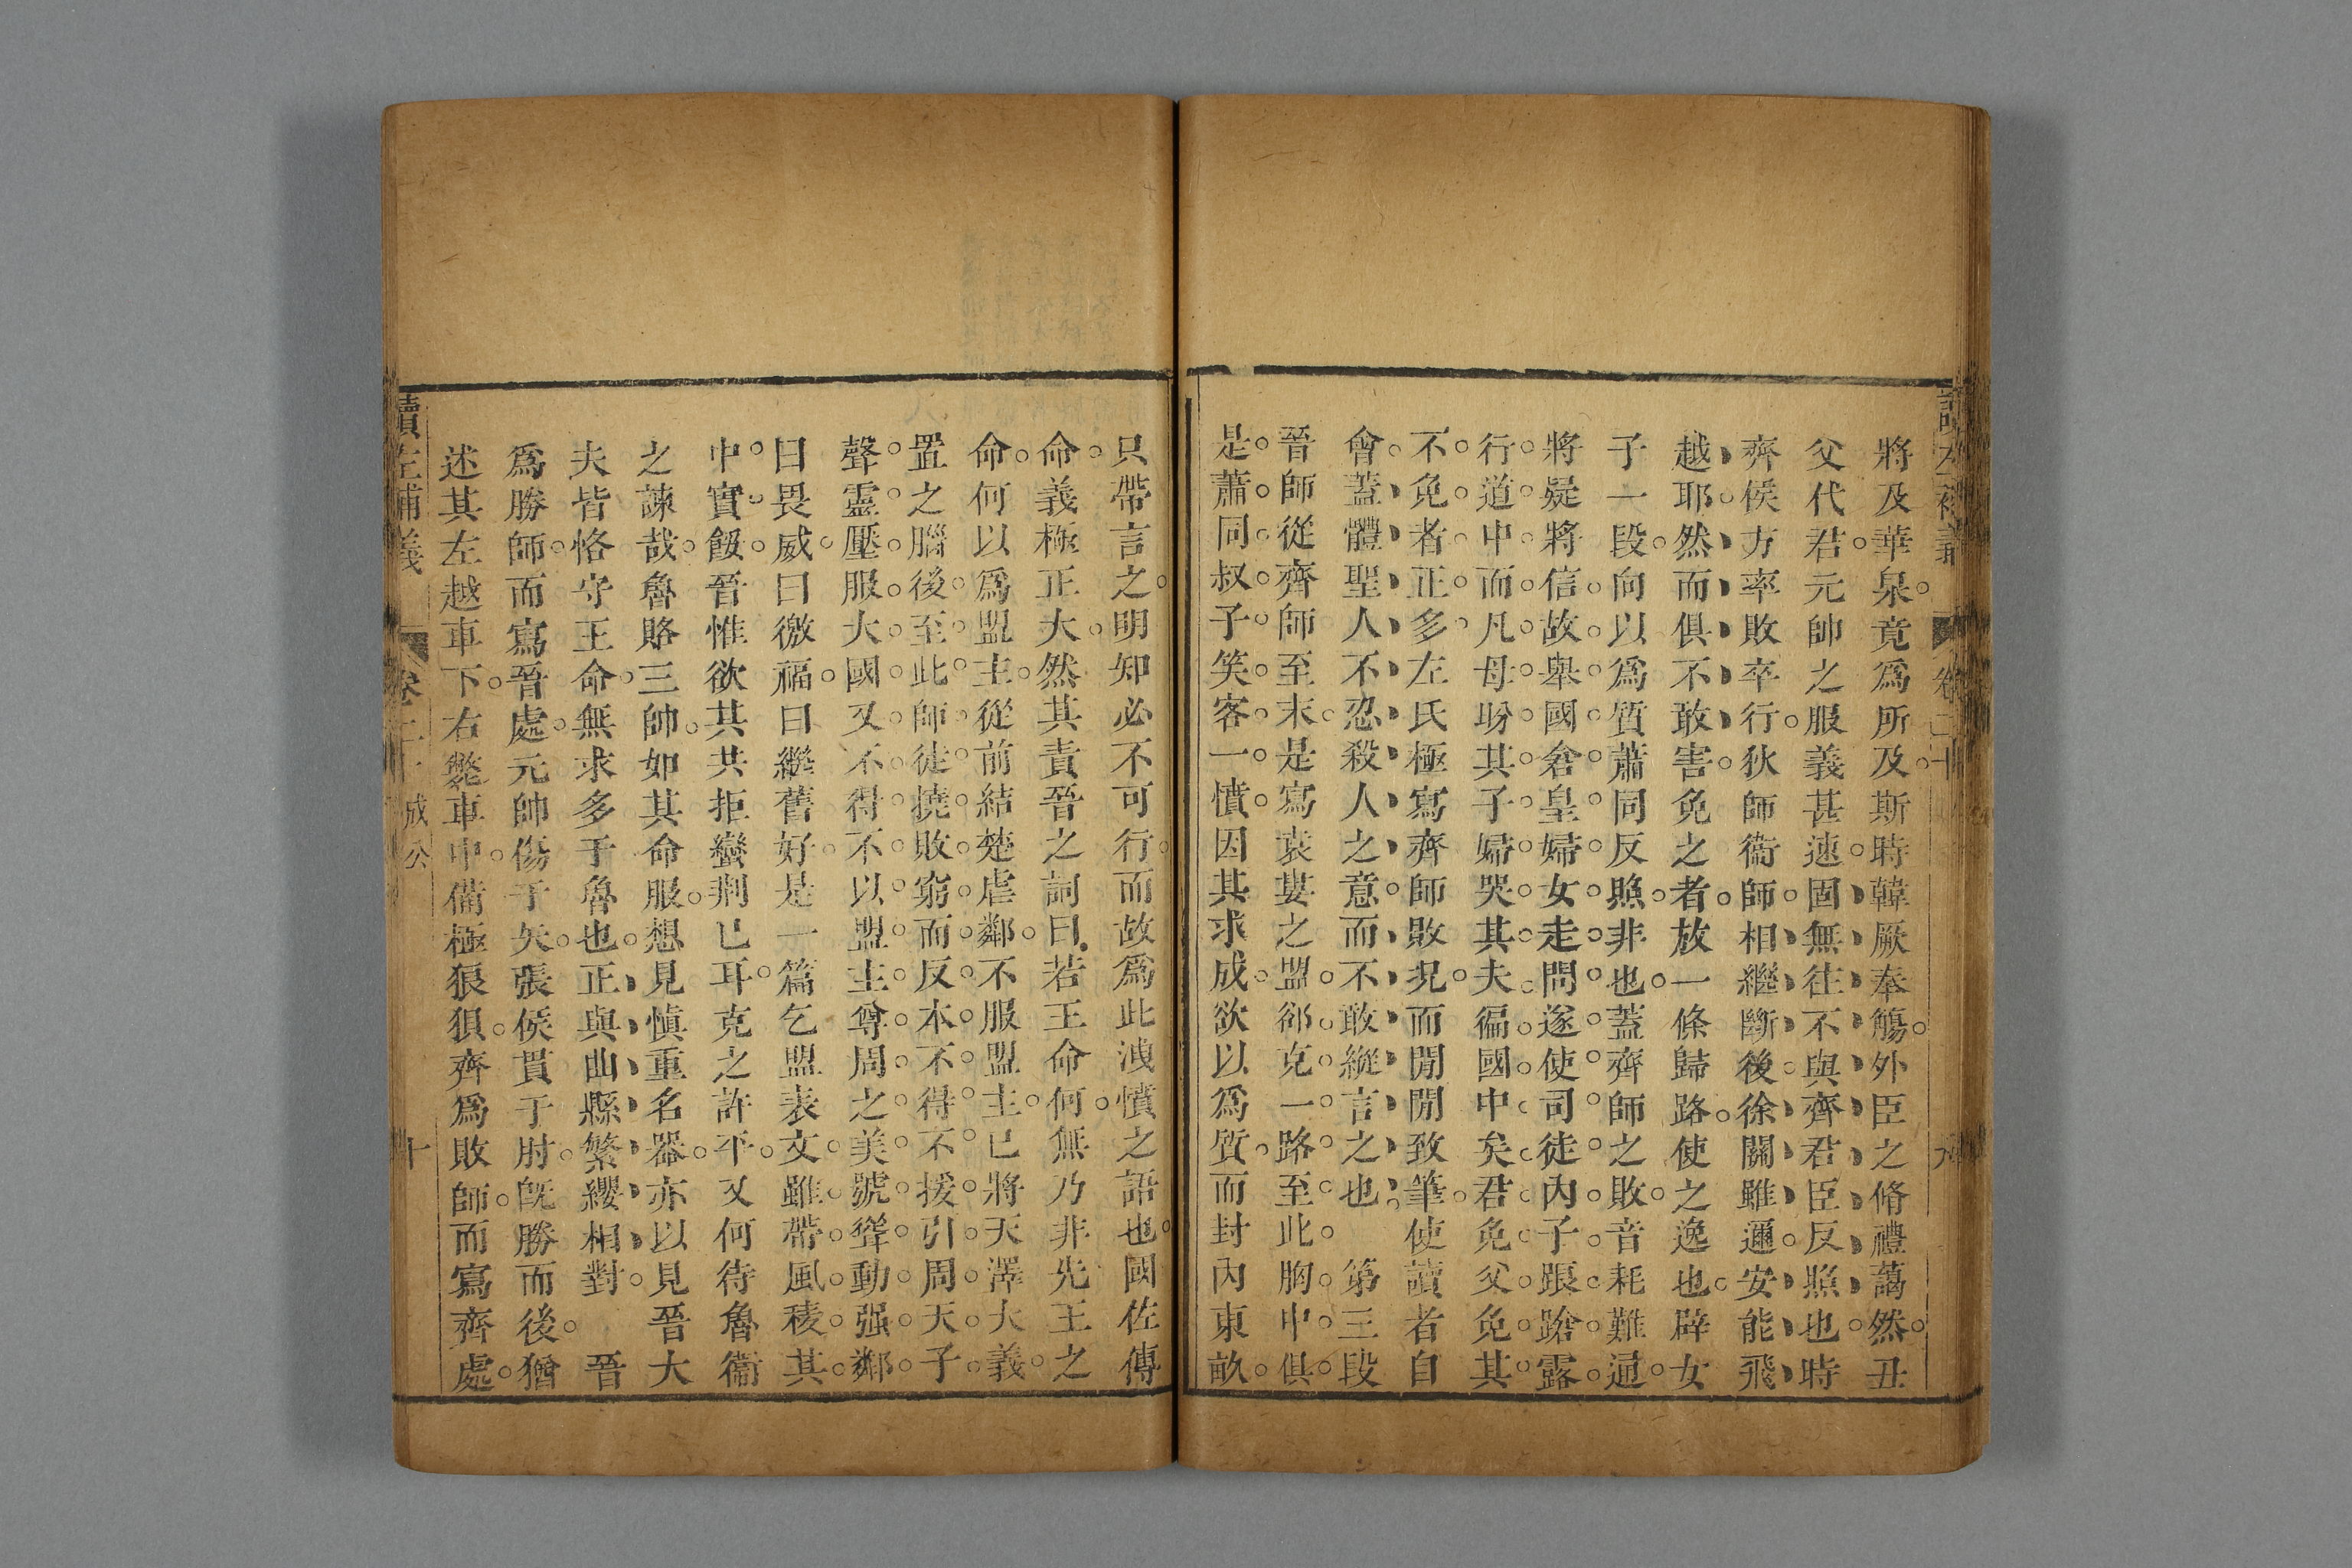 將及華泉竟爲所及斯時韓厥奉觴外臣之脩禮藹然丑
父代君元帥之服義甚速固無往不與齊君臣反照也時
齊侯方率敗卒行狄師衞師相繼斷後徐關雖邇安能飛
越耶然而俱不敢害免之者放一條歸路使之逸也辟女
子一段向以爲質蕭同反照非也蓋齊師之敗音耗難通
將疑將信故舉國倉皇婦女走問遂使司徒內子踉蹌露
行道中而凡母盼其子婦哭其夫徧國中矣君免父免其
不免者正多左氏極寫齊師敗況而閒閒致筆使讀者自
會蓋體聖人不忍殺人之意而不敢縱言之也 第三段
晉師從齊師至末是寫袁婁之盟郤克一路至此胸中俱
是蕭同叔子笑客一憤因其求成欲以爲質而封內東畝
只帶言之明知必不可行而故爲此洩憤之語也國佐傳
命義極正大然其責晉之詞曰若王命何無乃非先王之
命何以爲盟主從前結楚虐鄰不服盟主已將天澤大義
置之腦後至此師徒撓敗窮而反本不得不援引周天子
聲靈壓服大國又不得不以盟主尊周之美號聳動强鄰
曰畏威曰徼福曰繼舊好是一篇乞盟表文雖帶風稜其
中實餒晉惟欲其共拒蠻荆已耳克之許平又何待魯衞
之諫哉魯賂三帥如其命服想見愼重名器亦以見晉大
夫皆恪守王命無求多于魯也正與曲縣繁纓相對 晉
爲勝師而寫晉處元帥傷于矢張侯貫于肘旣勝而後猶
述其左越車下右斃車中備極狼狽齊爲敗師而寫齊處
讀左補義 卷二十 成公 十